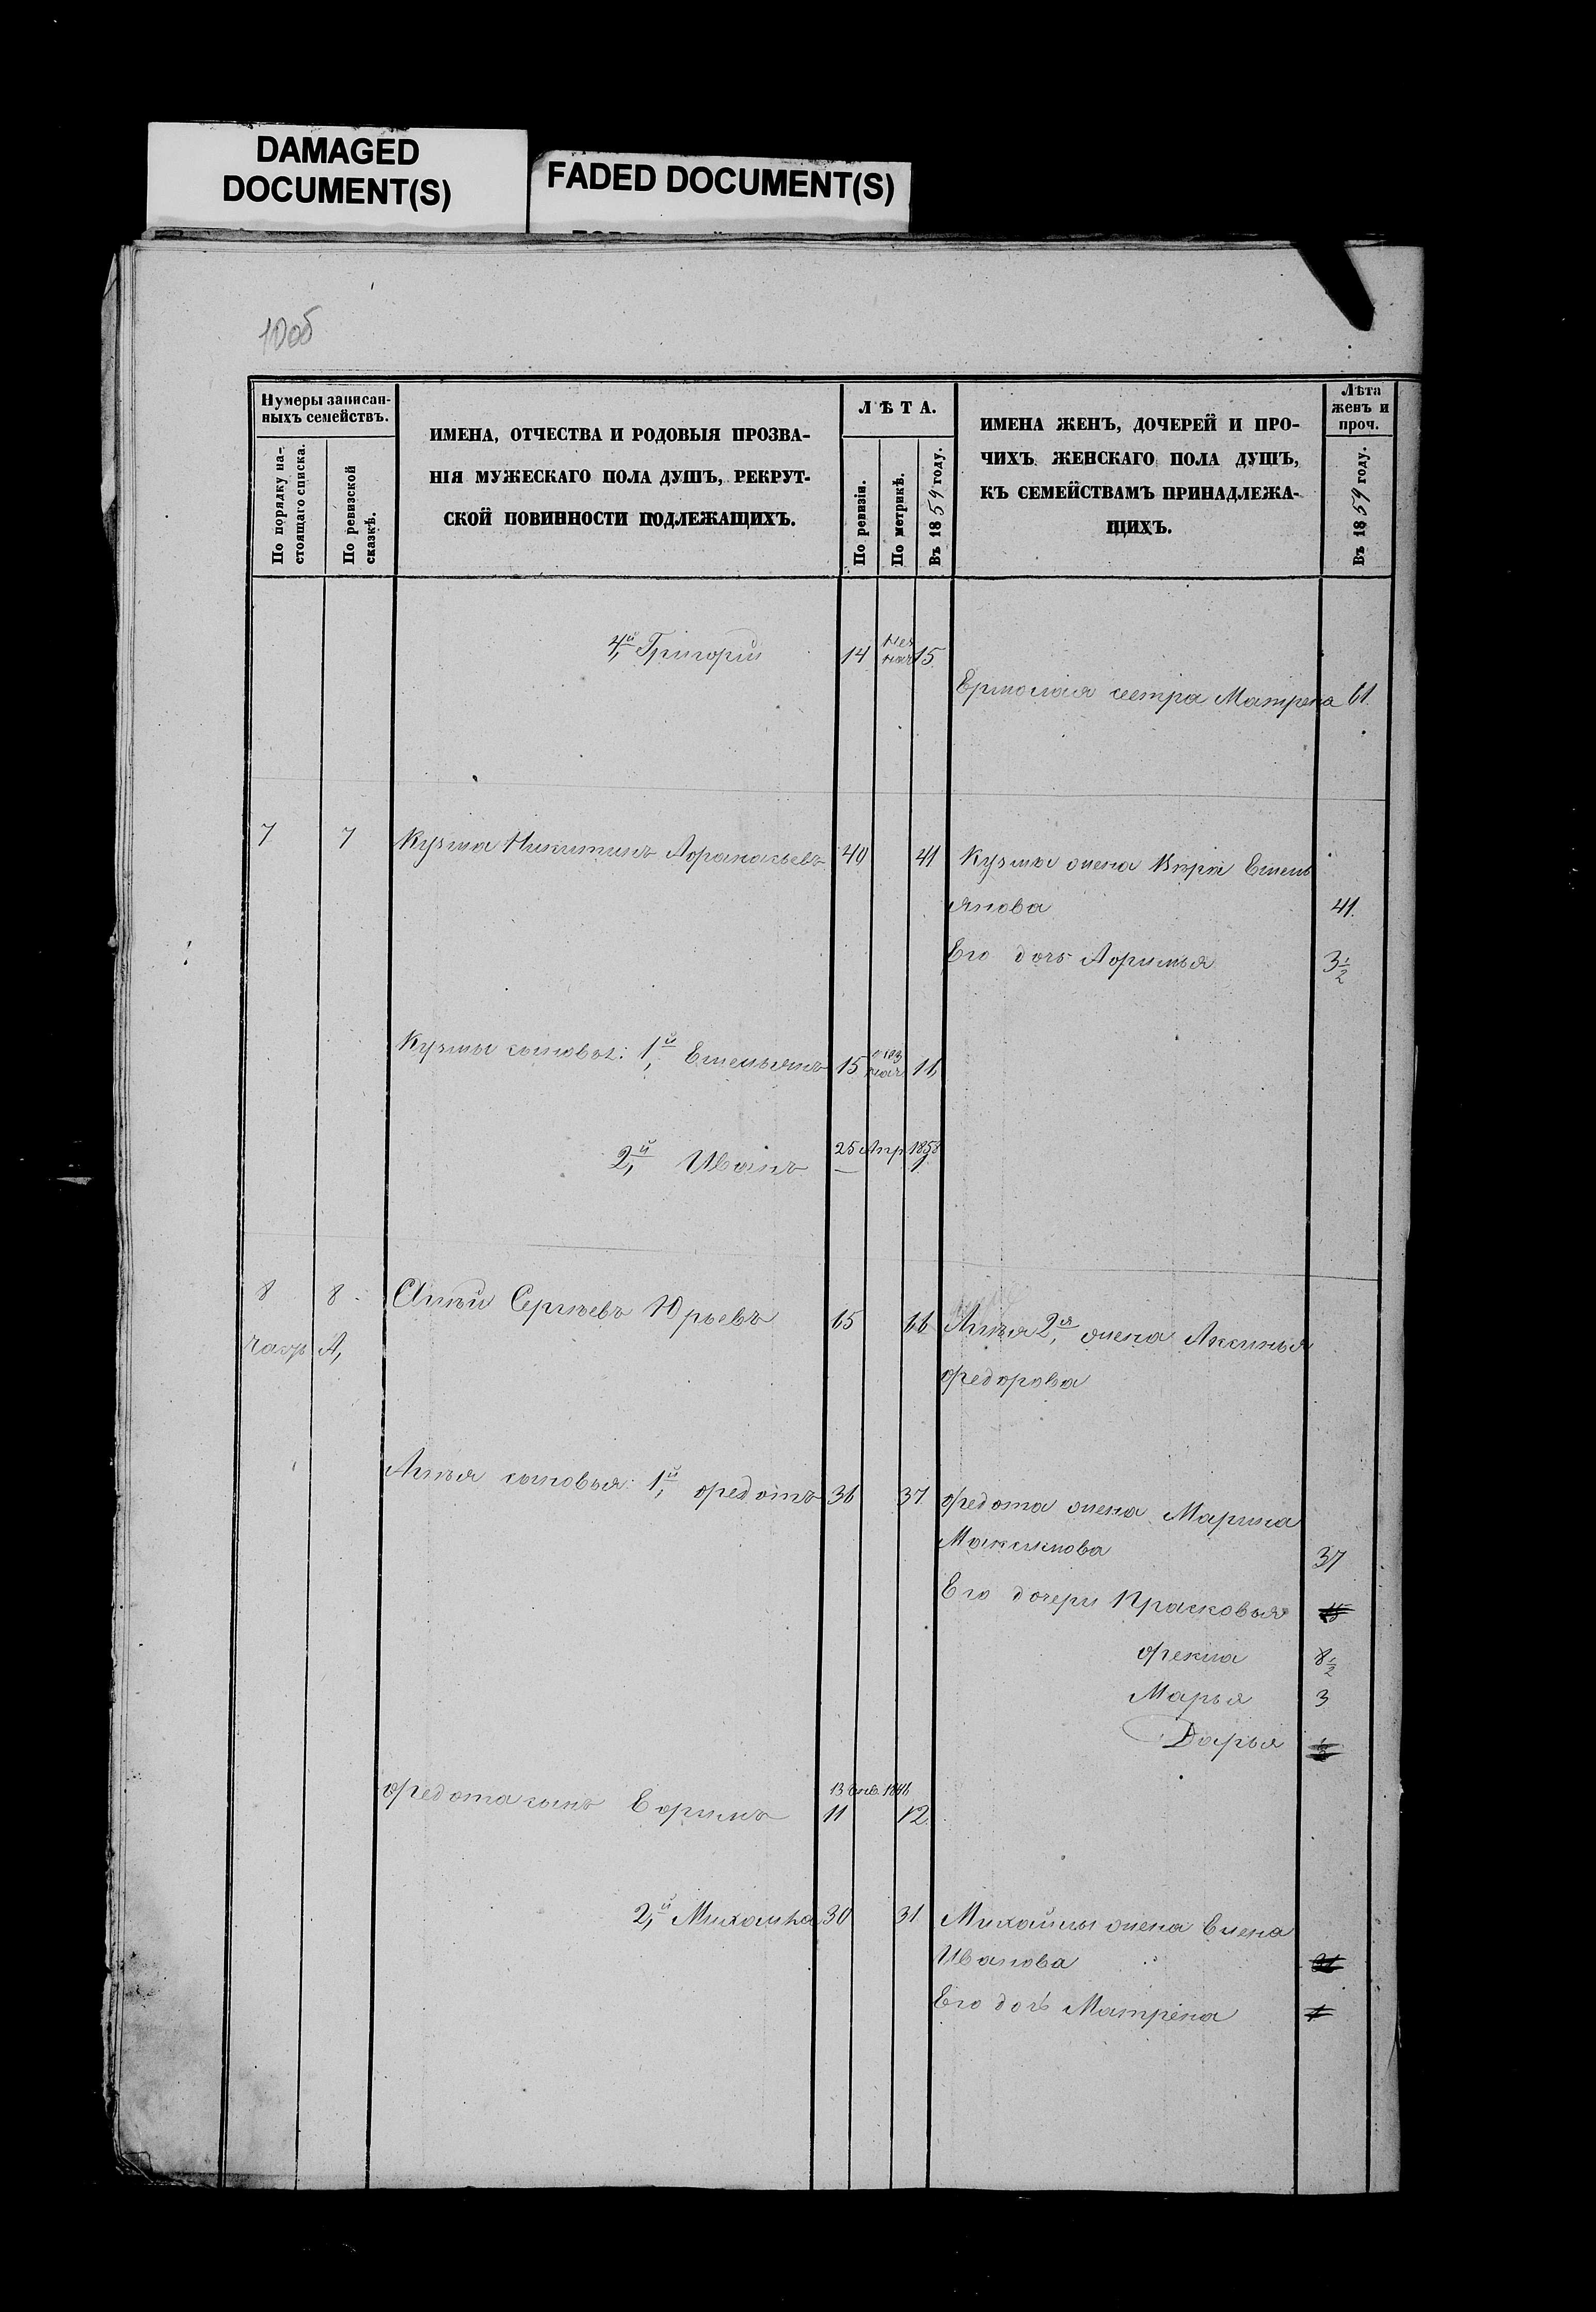 DAMAGED
DOCUMENT(S)
FADED DOCUMENT(S)
10об
Нумеры записан-
ныхъ семействъ.
По порядку на-
стоящаго списка.
По ревизской
сказкѣ.
ИМЕНА, ОТЧЕСТВА И РОДОВЫЯ ПРОЗВА-
НІЯ МУЖЕСКАГО ПОЛА ДУШЪ, РЕКРУТ-
СКОЙ ПОВИННОСТИ ПОДЛЕЖАЩИХЪ.
ЛѢТА.
По ревизіи.
По метрикѣ.
Въ 1859 году.
ИМЕНА ЖЕНЪ, ДОЧЕРЕЙ И ПРО-
ЧИХЪ ЖЕНСКАГО ПОЛА ДУШЪ,
КЪ СЕМЕЙСТВАМЪ ПРИНАДЛЕЖА-
ЩИХЪ.
Лѣта
женъ и
проч.
Въ 1859 году.
4й Григорій 14 15
Ермолая сестра Матрена 61.
7 7 Кузма Никитинъ Афанасьевъ 40 41 Кузмы жена Вѣра Емель
янова 41.
Его дочь Афимья 3 1/2
Кузмы сыновья: 1й Емельянъ 15 11
2й Иванъ 25 Апр 1858
1
8 8. Алѣй Сергѣевъ Юрьевъ 65 66 2я жена Аксинья
А, Федорова
сыновья: 1й Федотъ 36 37 Федота жена Марина
Максимова 37
Его дочери Прасковья 15
Фекла 8 1/2
Марья 3
Дарья 1/2
13 янв. 1846
Федота сынъ Ефимъ 11 12
2й Михайла 30 31 Михайлы жена Елена
Иванова
Его дочь Матрена 1